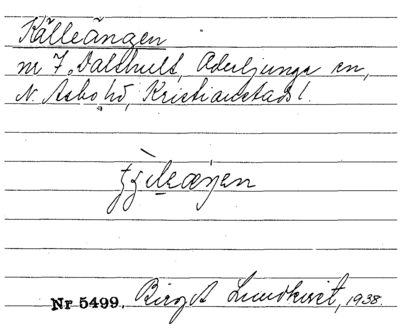 Källeängen
nr 7, Dalshult, Örkelljunga sn,
N. Åsbo hd, Kristianstads l.
Nr 5499. Birgit Lundkvist, 1938.